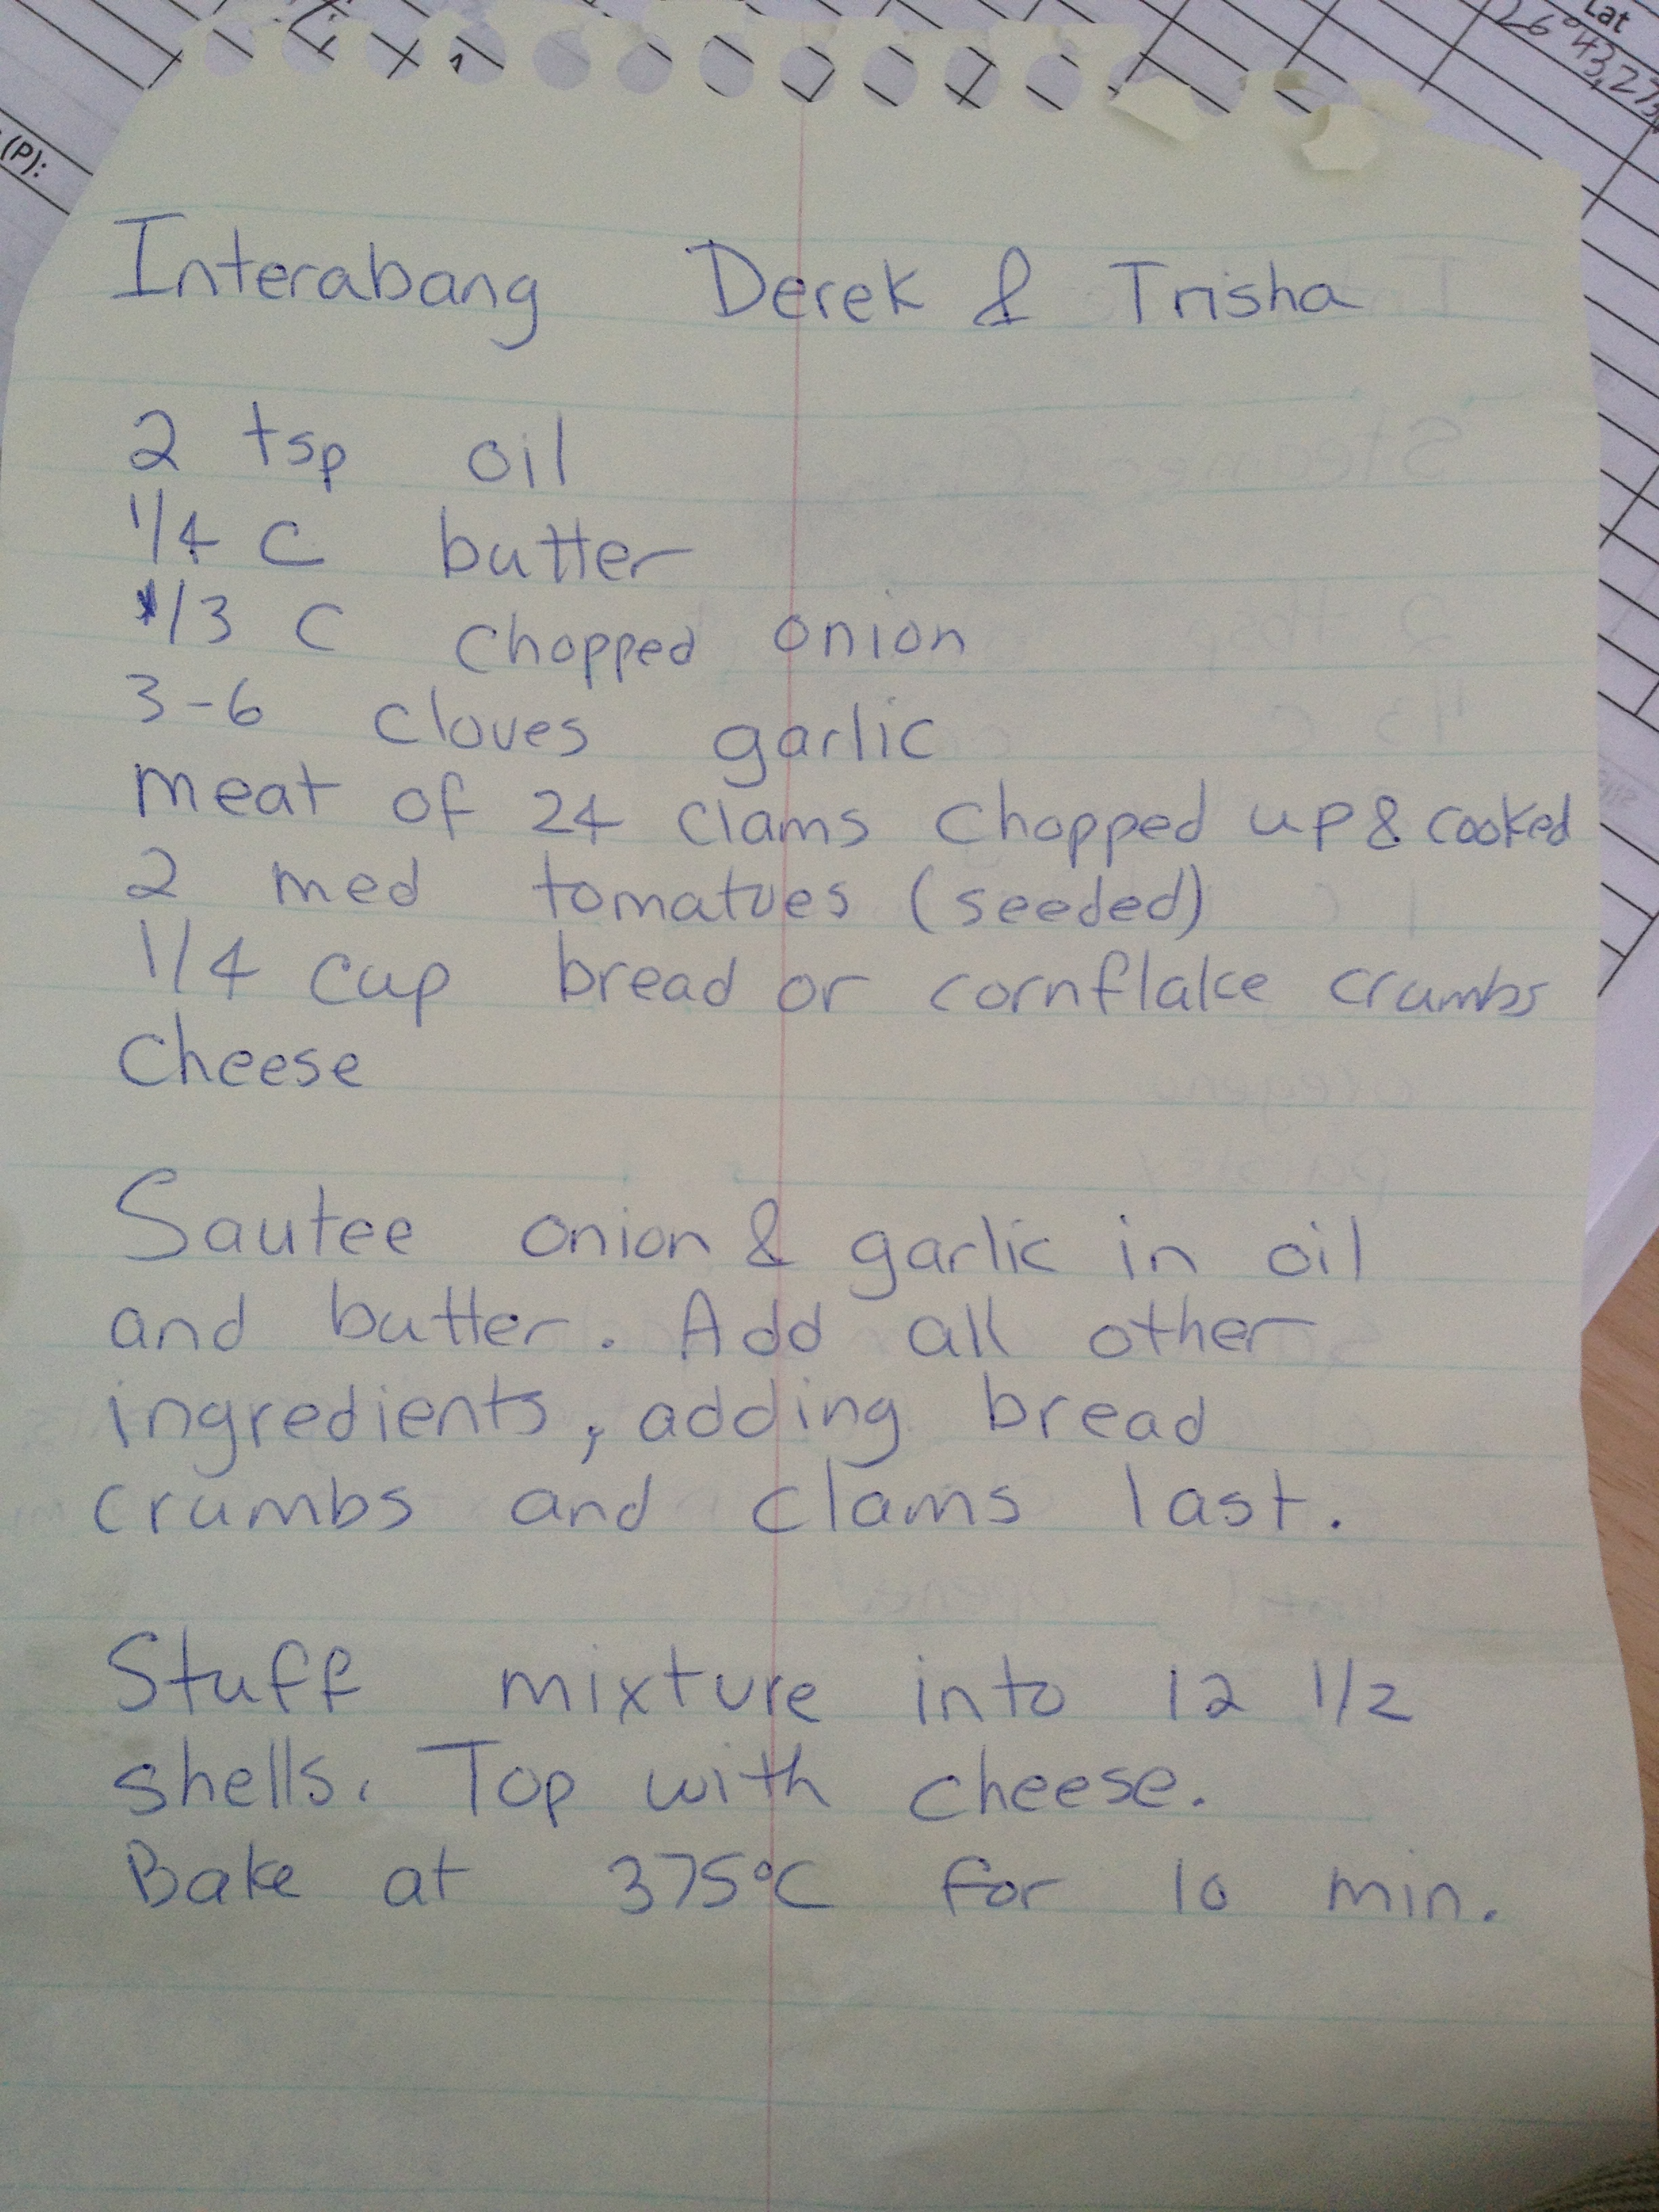 Lat
26° 43,27
(P):
Interabang Derek & Trisha
2 tsp oil
1/4 C butter
1/3 C chopped onion
3-6 cloves garlic
meat of 24 clams chopped up & cooked
2 med tomatoes (seeded)
1/4 cup bread or cornflake crumbs
Cheese
Sautee onion & garlic in oil
and butter. Add all other
ingredients, adding bread
crumbs and clams last.
Stuff mixture into 12 1/2
shells. Top with cheese.
Bake at 375°C for 10 min.